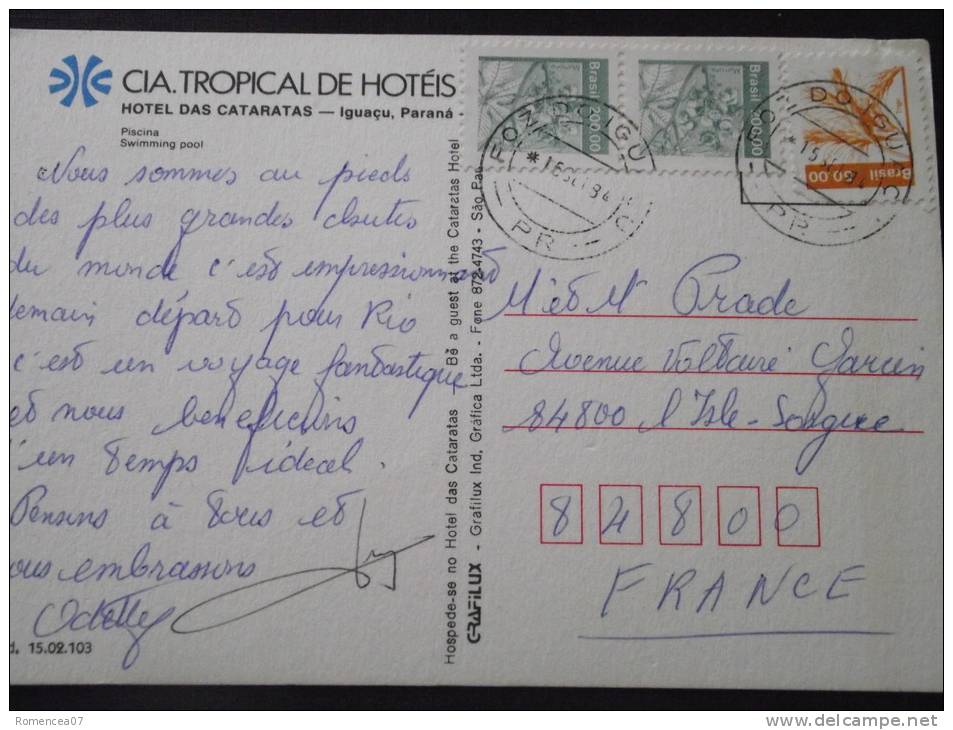 CIA.TROPICAL DE HOTÉIS
HOTEL DAS CATARATAS — Iguaçu, Paraná -
Piscina
Swimming pool
Nous sommes au pieds
des plus grandes chutes
du monde, c'est impressionnant
demain départ pour Rio
c'est un voyage fantastique
et nous beneficions
d'un temps ideal.
Pensons à tous et
vous embrassons
Odette
d. 15.02.103
Hospede-se no Hotel das Cataratas — Be a guest at the Cataratas Hotel
GRAFILUX - Grafilux Ind. Gráfica Ltda. - Fone 872-4743 - São Pau
Brasil 200.00
Brasil 200.00
Brasil 50.00
FOZ DO IGUAÇU
PR
FOZ DO IGUAÇU
PR
M et M Prade
Avenue Voltaire Garcin
84800 l'Isle-Sorgue
84800
FRANCE
Romencea07
www.delcampe.net